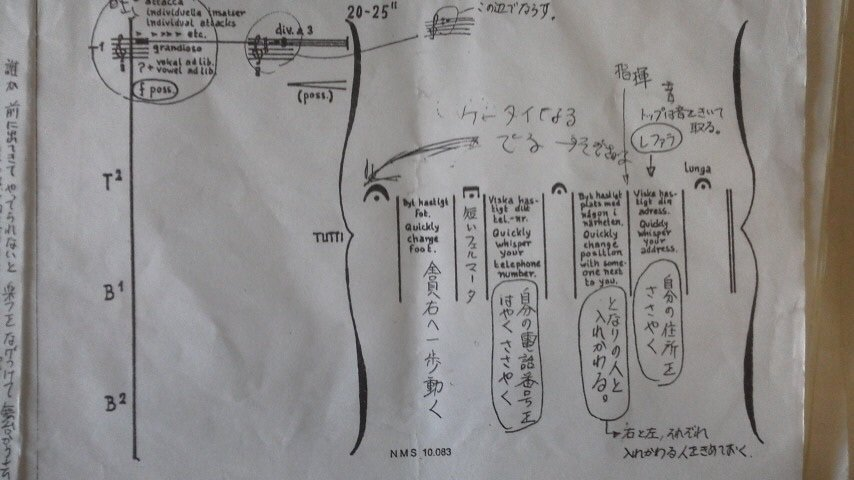 attacca
individuella insatser
individual attacks
> >>> etc.
grandioso
? + vokal ad lib.
vowel ad lib.
f poss.
T¹
div. a 3
20-25"
(poss.)
この辺でならす。
指揮
音
トップは音をきいて
取る。
レファラ
ケータイなる
でる
T²
B¹
B²
TUTTI
Byt hastigt
fot.
Quickly
change
foot.
全員右へ一歩動く
短いフェルマータ
Viska has-
tigt ditt
tel.-nr.
Quickly
whisper
your
telephone
number.
自分の電話番号を
はやくささやく
Byt hastigt
plats med
någon i
närheten.
Quickly
change
position
with some-
one next
to you.
となりの人と
入れかわる。
右と左、それぞれ
入れかわる人をきめておく。
Viska has-
tigt din
adress.
Quickly
whisper
your
address.
自分の住所を
ささやく
lunga
N.M.S. 10.083
誰か前に出てきてやってられないと